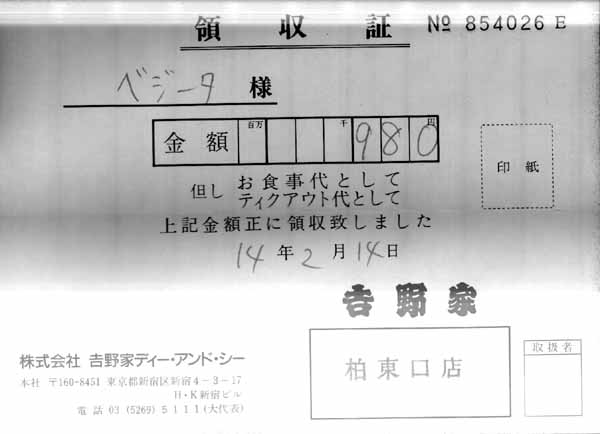 領収証
№ 854026 E
ベジータ 様
金額 百万 千 円 980
印紙
但し お食事代として
ティクアウト代として
上記金額正に領収致しました
14年2月14日
吉野家
株式会社 吉野家ディー・アンド・シー
本社 〒160-8451 東京都新宿区新宿4-3-17
H・K新宿ビル
電話 03 (5269) 5111(大代表)
柏東口店
取扱者